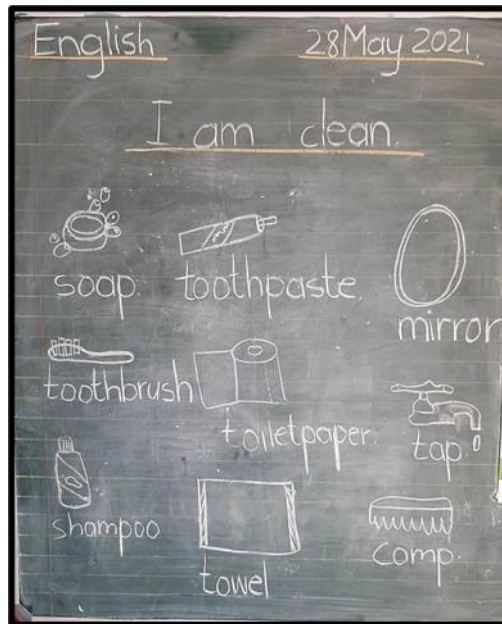 English 28 May 2021.
I am clean.
soap. toothpaste.
mirror
toothbrush
toiletpaper.
tap.
shampoo
comp.
towel